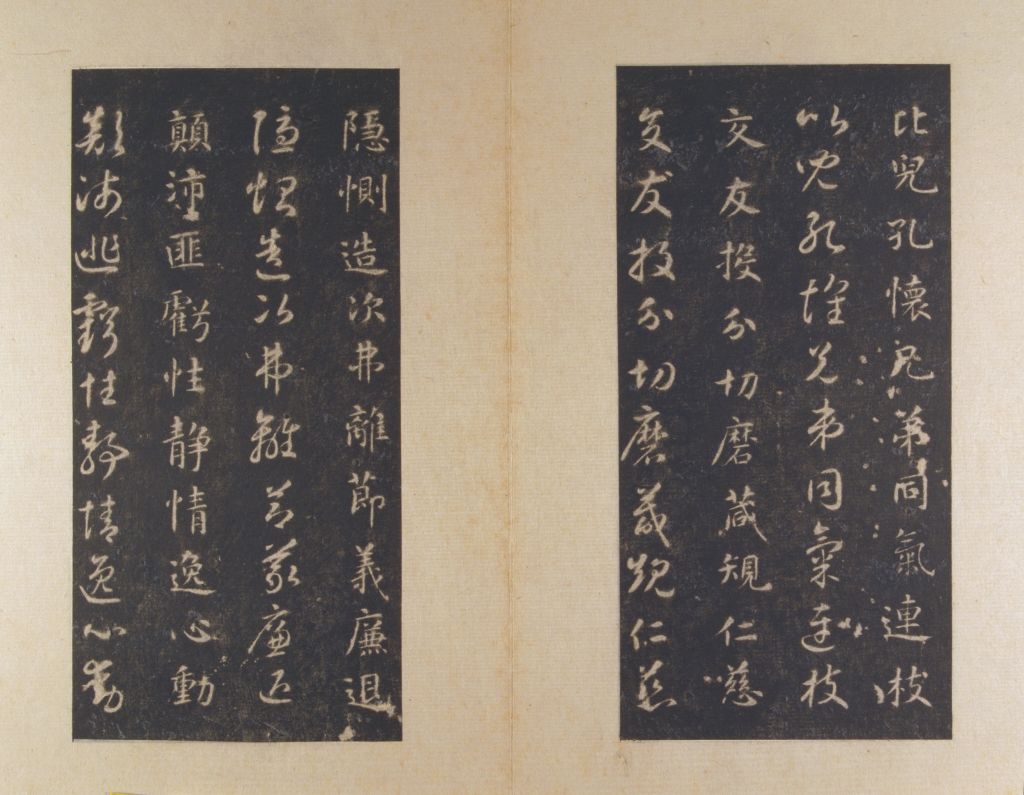 比兒孔懷兄弟同氣連枝
比兒孔懷兄弟同氣連枝
交友投分切磨箴規仁慈
交友投分切磨箴規仁慈
隱惻造次弗離節義廉退
隱惻造次弗離節義廉退
顛沛匪虧性靜情逸心動
顛沛匪虧性靜情逸心動